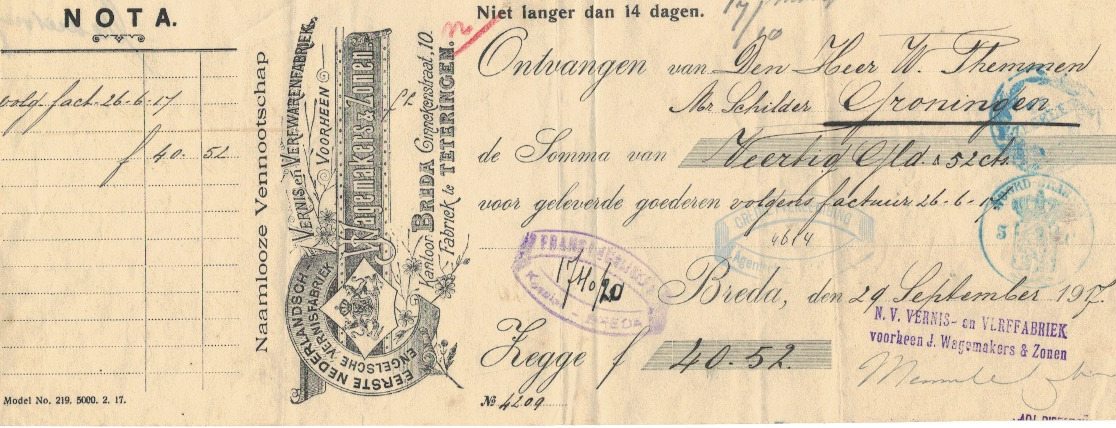 NOTA.
volg. fact. 26-6-17
f 40-52
Model No. 219. 5000. 2. 17.
Naamlooze Vennootschap
VERNIS en VERFWARENFABRIEK,
VOORHEEN
Wagemakers & Zonen.
Kantoor BREDA Ginnekenstraat, 10.
Fabriek te TETERINGEN.
EERSTE NEDERLANDSCH
ENGELSCHE VERNISFABRIEK
Niet langer dan 14 dagen.
Ontvangen van Den Heer W. Themmen
Mr Schilder Groningen
de Somma van Veertig Gld & 52 cts
voor geleverde goederen volgens factuur 26-6-17
4614
1740/20
BREDA
Breda, den 29 September 1917
N.V. VERNIS- en VERFFABRIEK
voorheen J. Wagemakers & Zonen
Zegge f 40.52.
№ 4209